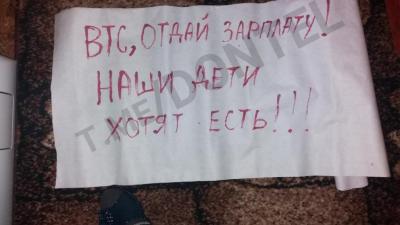 ВТС, ОТДАЙ ЗАРПЛАТУ!
НАШИ ДЕТИ
ХОТЯТ ЕСТЬ!!!
T.ME/DONTEL